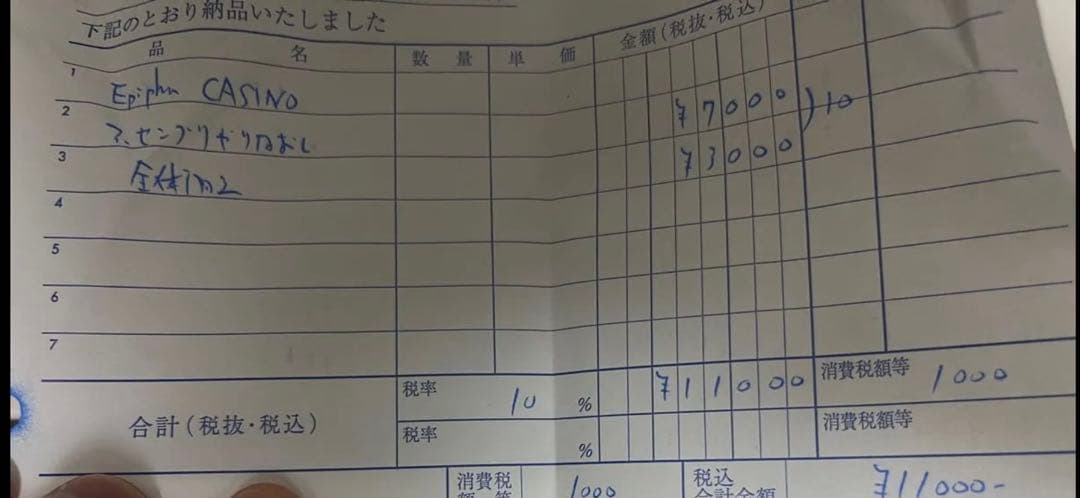 下記のとおり納品いたしました
品 名 数 量 単 価 金額(税抜・税込)
1 Epiphn CASINO
2 アッセンブリやりなおし ¥7000 ) 10
3 全体 ¥3000
4
5
6
7
合計(税抜・税込) 税率 10 % ¥11000 消費税額等 1000
税率 % 消費税額等
消費税額等 1000 税込合計金額 ¥11000-